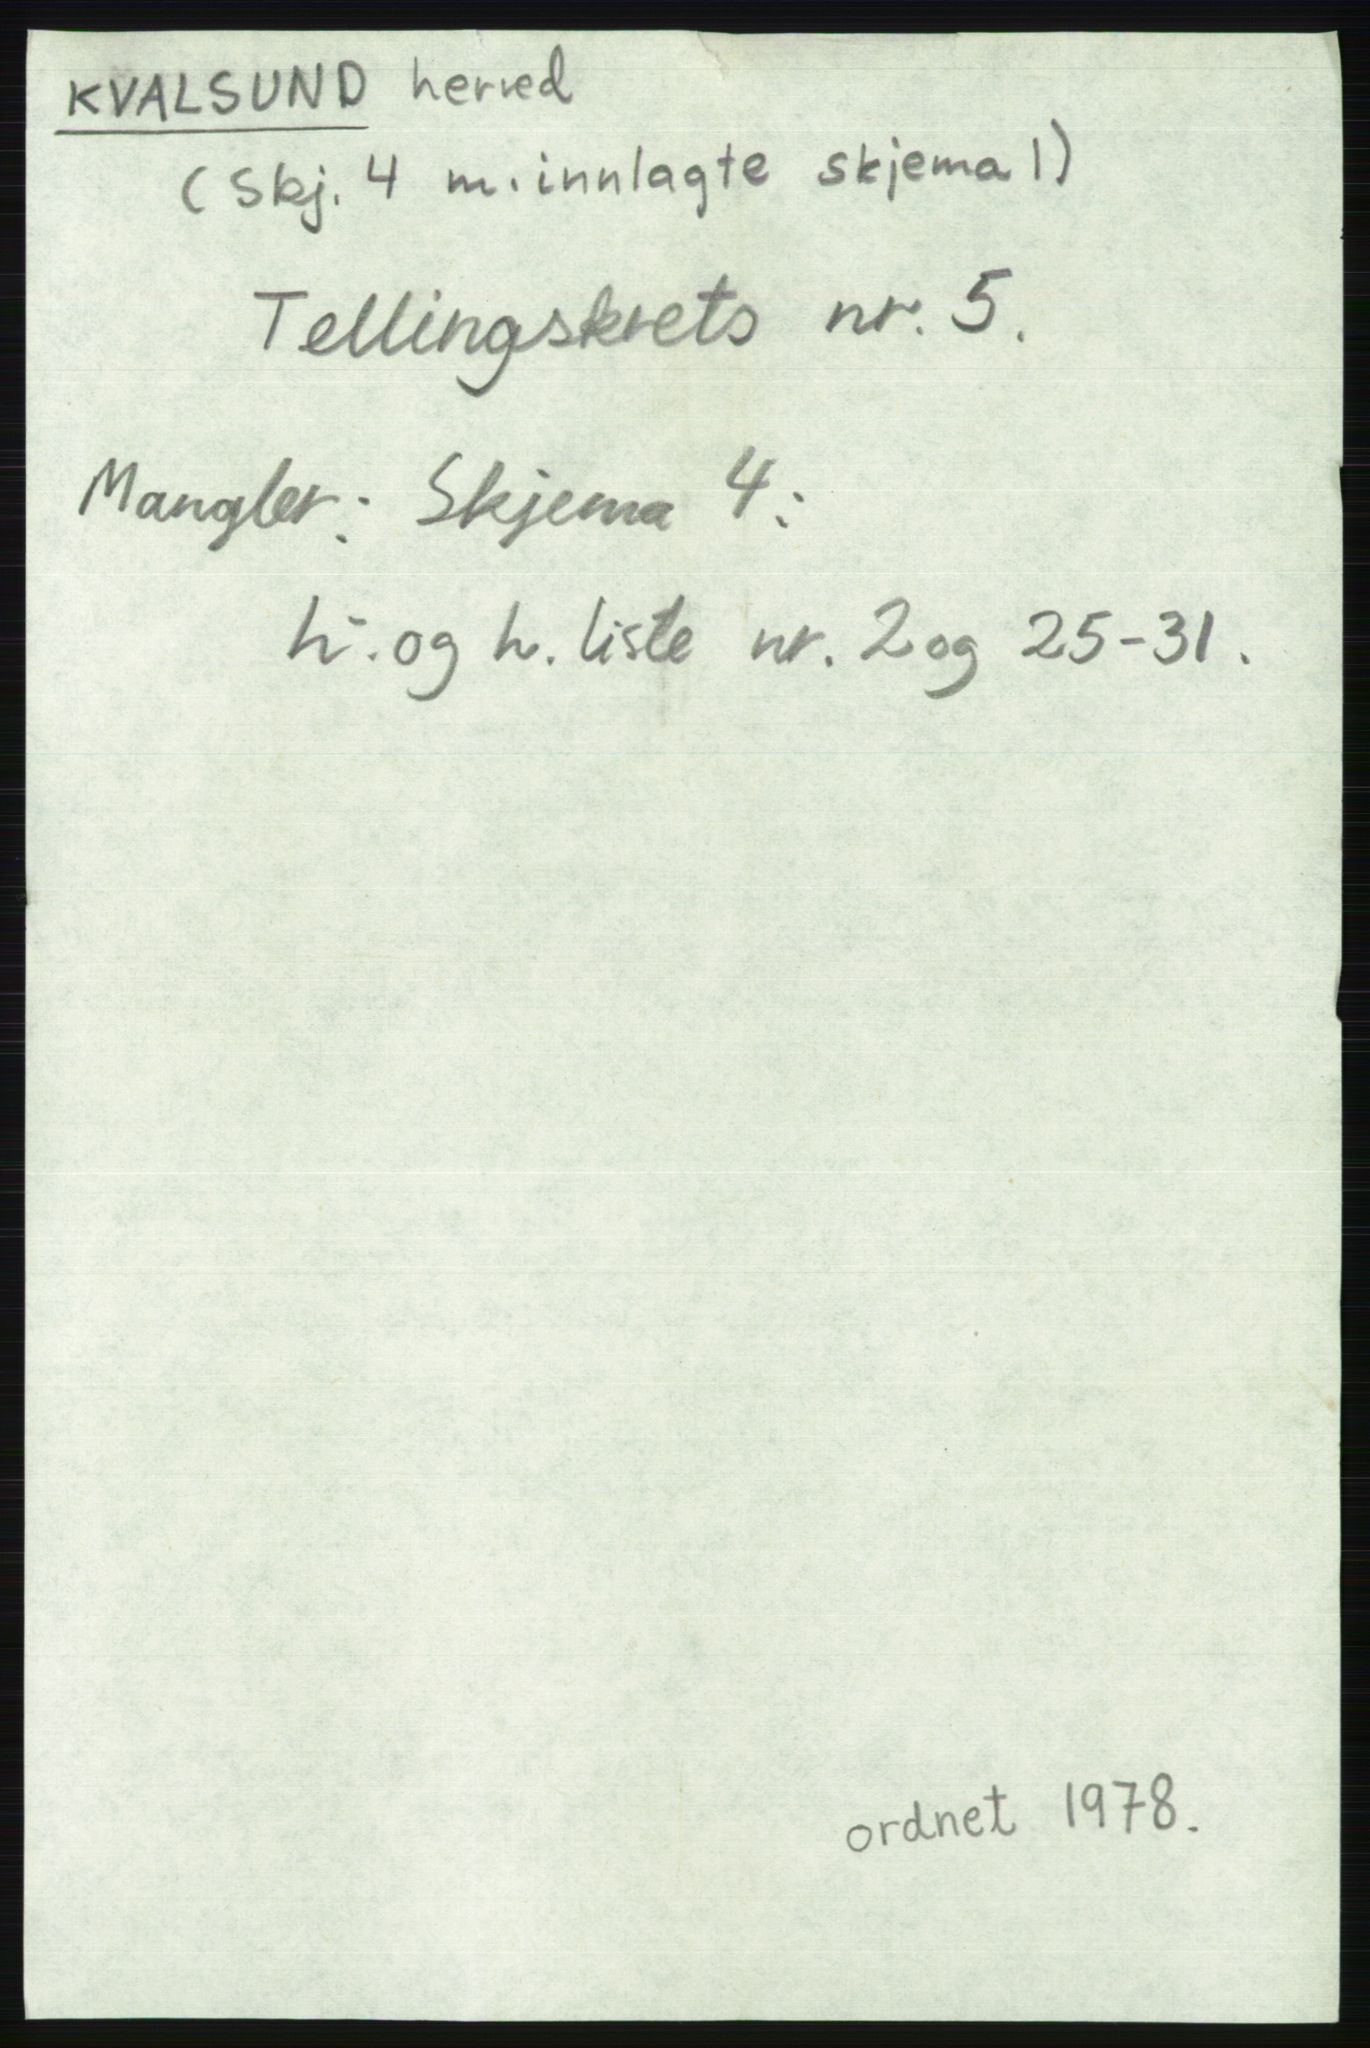 KVALSUND herred
(Skj. 4 m. innlagte skjema 1)
Tellingskrets nr. 5.
Mangler: Skjema 4:
h. og h. liste nr. 2 og 25-31.
ordnet 1978.